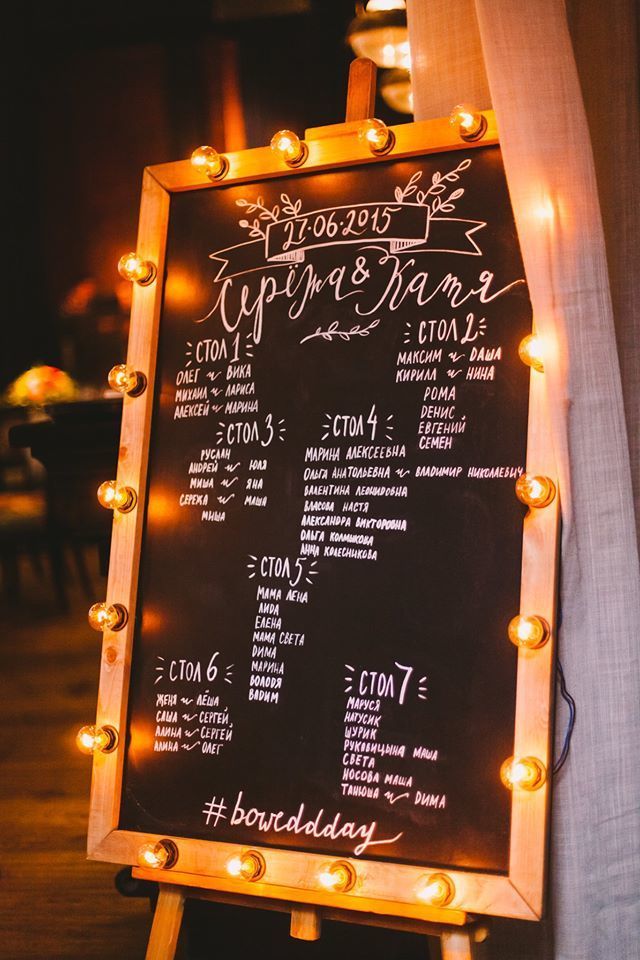 27·06·2015
Серёжа & Катя
СТОЛ 1
ОЛЕГ и ВИКА
МИХАИЛ и ЛАРИСА
АЛЕКСЕЙ и МАРИНА
СТОЛ 2
МАКСИМ и ДАША
КИРИЛЛ и НИНА
РОМА
ДЕНИС
ЕВГЕНИЙ
СЕМЕН
СТОЛ 3
РУСЛАН
АНДРЕЙ и ЮЛЯ
МИША и ЯНА
СЕРЕЖА и МАША
МИША
СТОЛ 4
МАРИНА АЛЕКСЕЕВНА
ОЛЬГА АНАТОЛЬЕВНА и ВЛАДИМИР НИКОЛАЕВИЧ
ВАЛЕНТИНА ЛЕОНИДОВНА
ВЛАСОВА НАСТЯ
АЛЕКСАНДРА ВИКТОРОВНА
ОЛЬГА КОЛМЫКОВА
АННА КОЛЕСНИКОВА
СТОЛ 5
МАМА ЛЕНА
ЛИДА
ЕЛЕНА
МАМА СВЕТА
ДИМА
МАРИНА
ВОЛОДЯ
ВАДИМ
СТОЛ 6
ЖЕНЯ и ЛЁША
САША и СЕРГЕЙ
АЛИНА и СЕРГЕЙ
АЛИНА и ОЛЕГ
СТОЛ 7
МАРУСЯ
НАТУСИК
ШУРИК
РУКОВИЦЫНА МАША
СВЕТА
НОСОВА МАША
ТАНЮША и ДИМА
#boweddday